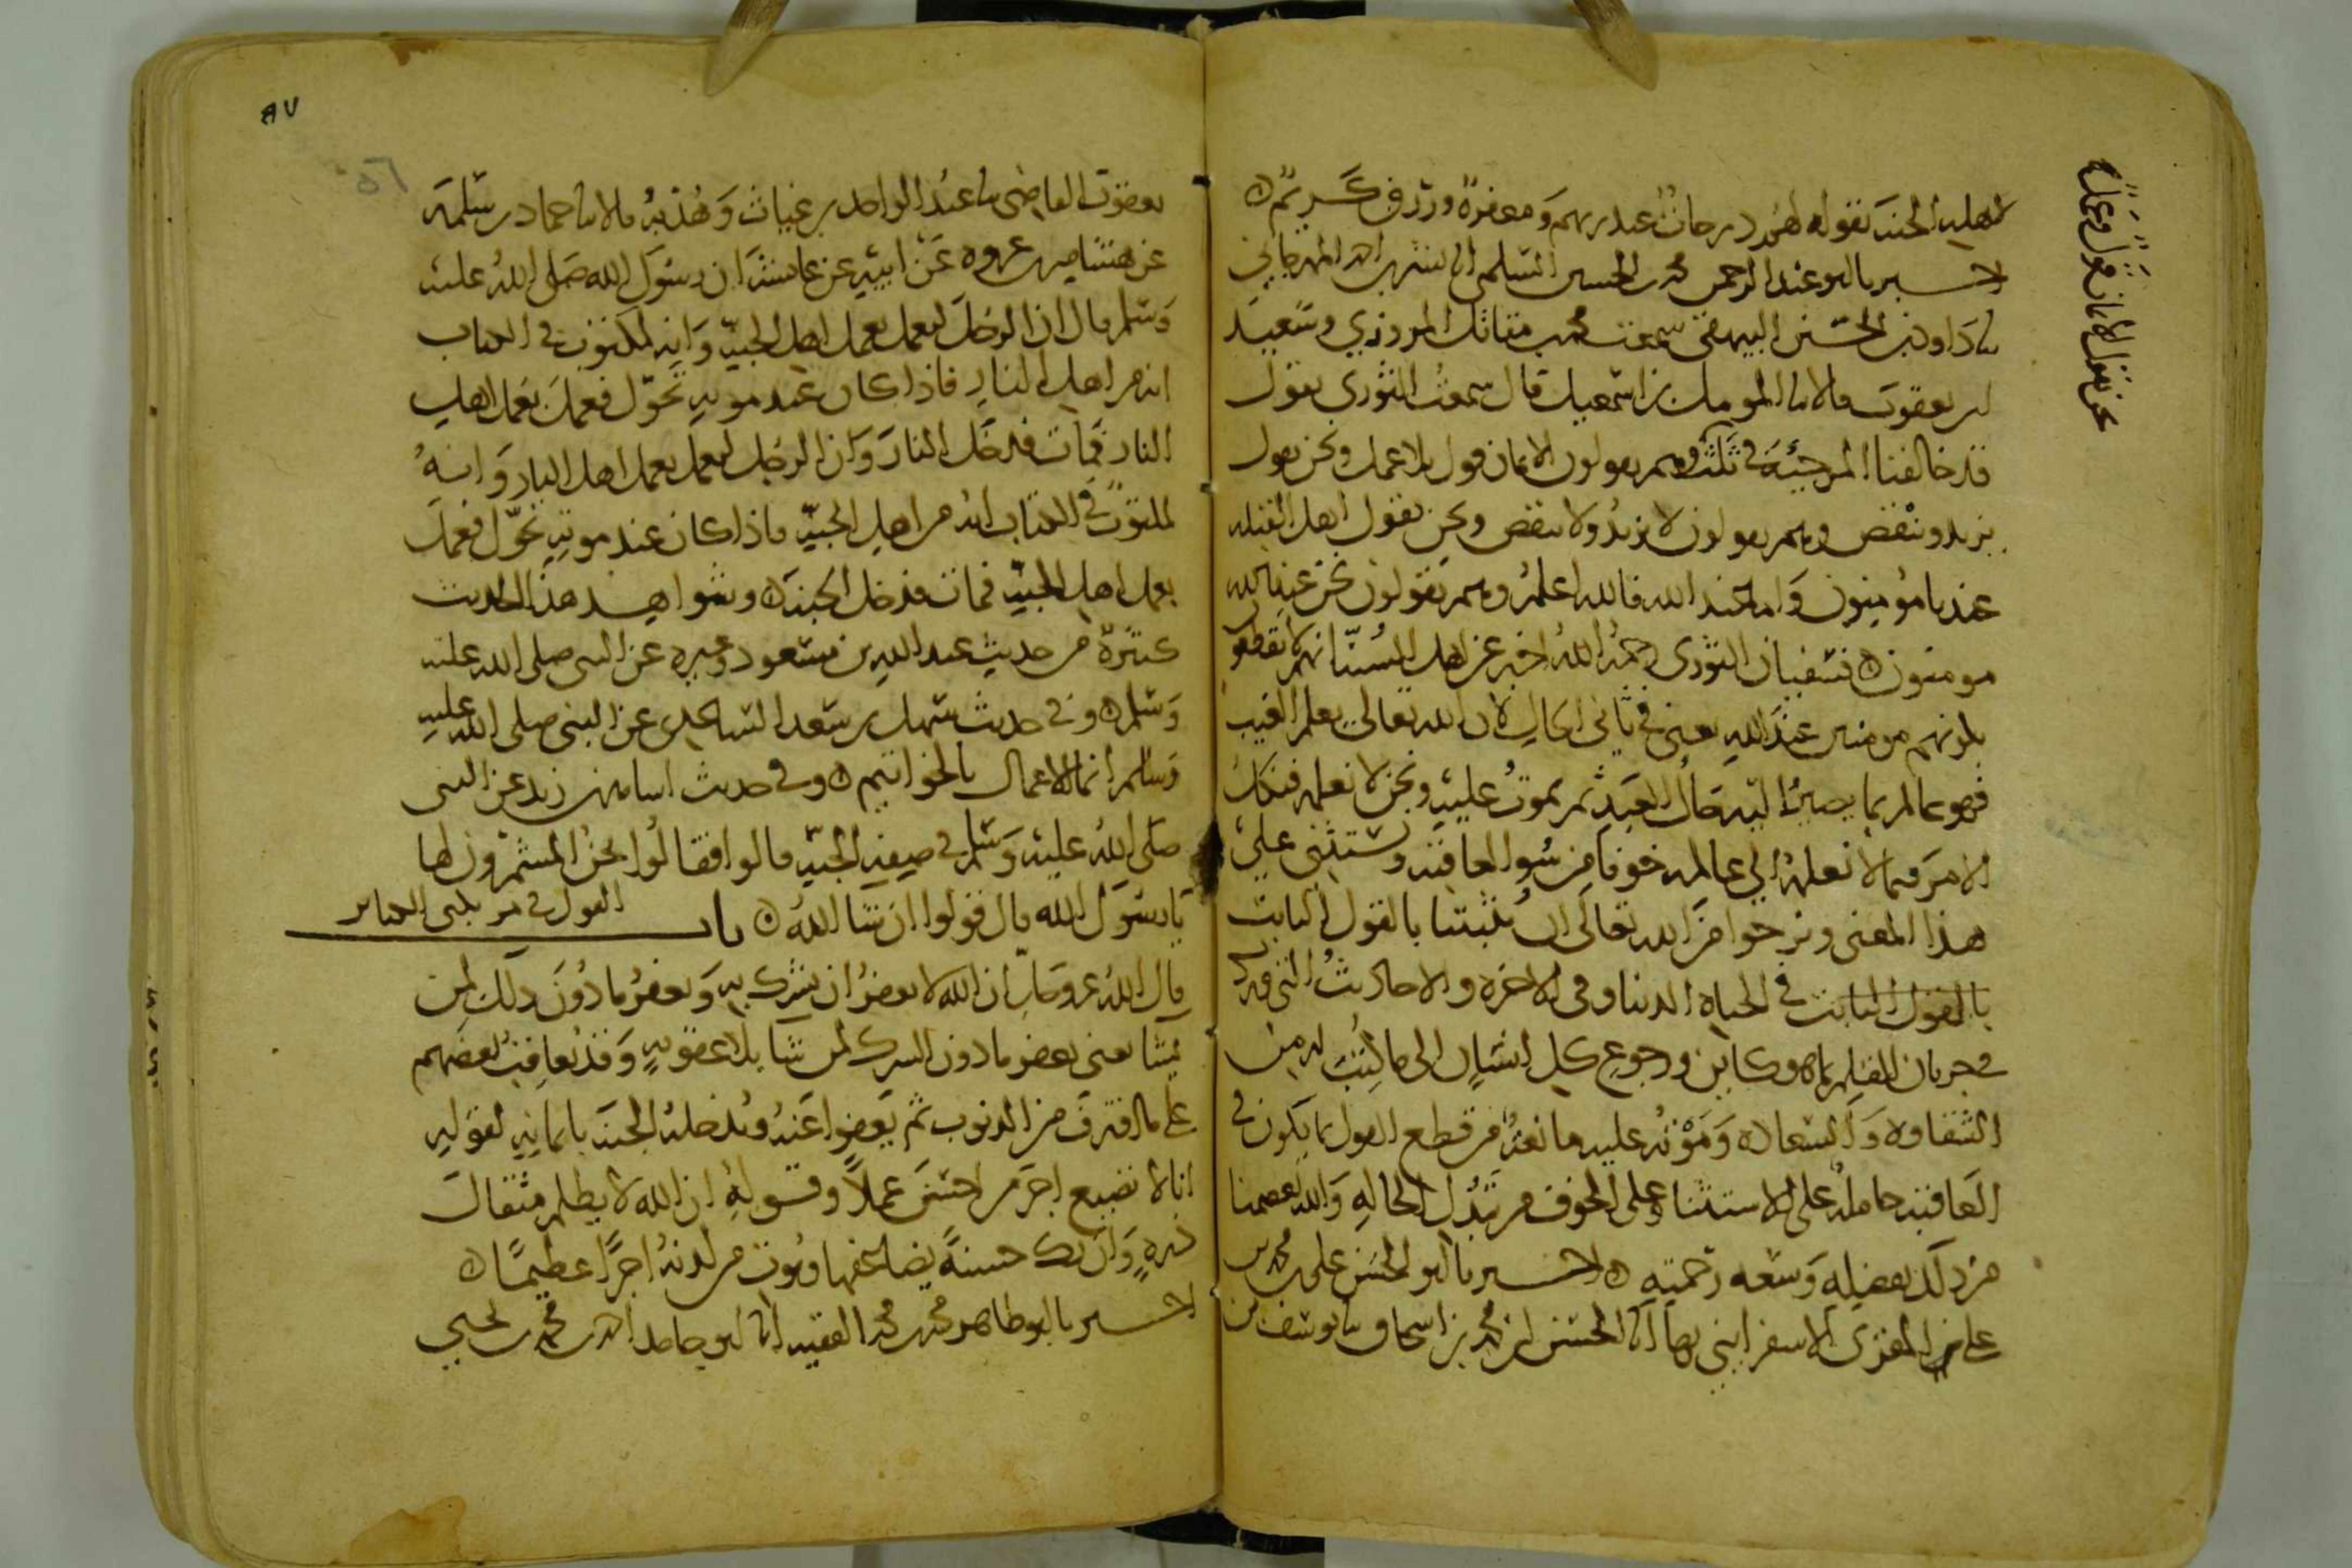 لاهليه الجنة بقوله لهم درجات عند ربهم ومغفرة ورزق كريم ه
اخبرنا ابو عبد الرحمن محمد بن الحسين السلمي انا بشر بن احمد المهرجاني
نا داود بن الحسين البيهقي سمعت محمد بن مقاتل المروزي وسعيد
بن يعقوب قالا نا المومل بن اسمعيل قال سمعت الثوري يقول
قد خالفنا المرجئة في ثلث وهم يقولون الايمان قول بلا عمل ونحن نقول
نحن نقول الايمان قول وعمل
يزيد وينقص وهم يقولون لا يزيد ولا ينقص ونحن نقول اهل القبلة
عندنا مؤمنون واما عند الله فالله اعلم وهم يقولون نحن عند الله
مومنون ه فسفيان الثوري رحمه الله اخبر عن اهل السنة انهم لا يقطعو
بكونهم مومنين عند الله يعني في ثاني الحال لان الله تعالى يعلم الغيب
فهو عالم بما يصير اليه حال العبد ثم يموت عليه ونحن لا نعلمه فنكل
الامر فيما لا نعلمه الى عالمه خوفا من سوء العاقبة ونستثني على
هذا المعنى ونرجوا من الله تعالى ان يثبتنا بالقول الثابت
بالقول الثابت في الحياة الدنيا وفي الاخرة والاحاديث التي
في جريان القلم بما هو كاين ورجوع كل انسان الى ما كتب له من
الشقاوة والسعادة وموته عليه مانعة من قطع القول بما يكون في
العاقبة حاملة على الاستثناء وعلى الخوف من تبدل الحالة والله يعصمنا
من ذلك بفضله وسعة رحمته ه اخبرنا ابو الحسن علي بن محمد بن
علي المقري الاسفرايني بها انا الحسن بن محمد بن اسحاق نا يوسف بن
٨٧
يعقوب القاضي نا عبد الواحد بن غياث وهدبة قالا نا حماد بن سلمة
عن هشام بن عروة عن ابيه عن عائشة ان رسول الله صلى الله عليه
وسلم قال ان الرجل ليعمل بعمل اهل الجنة وانه لمكتوب في الكتاب
انه من اهل النار فاذا كان عند موته تحول فعمل بعمل اهل
النار فمات فدخل النار وان الرجل ليعمل بعمل اهل النار وانه
لمكتوب في الكتاب انه من اهل الجنة فاذا كان عند موته تحول فعمل
بعمل اهل الجنة فمات فدخل الجنة ه وشواهد هذا الحديث
كثيرة من حديث عبد الله بن مسعود وغيره عن النبي صلى الله عليه
وسلم ه وفي حديث سهل بن سعد الساعدي عن النبي صلى الله عليه
وسلم انما الاعمال بالخواتيم ه وفي حديث اسامة بن زيد عن النبي
صلى الله عليه وسلم في صفة الجنة قالوا فقالوا نحن المشمرون لها
يا رسول الله قال قولوا ان شا الله ه باب القول في مرتكبي الكبائر
قال الله عز وجل ان الله لا يغفر ان يشرك به ويغفر ما دون ذلك لمن
يشا يعني يغفر ما دون الشرك لمن شا بلا عقوبة وقد يعاقب بعضهم
على ما اقترف من الذنوب ثم يعفوا عنه ويدخله الجنة بايمانه لقوله
انا لا نضيع اجر من احسن عملا وقوله ان الله لا يظلم مثقال
ذرة وان تك حسنة يضاعفها ويوت من لدنه اجرا عظيما ه
اخبرنا ابو طاهر محمد بن محمد الفقيه انا ابو حامد احمد بن محمد بن يحيى